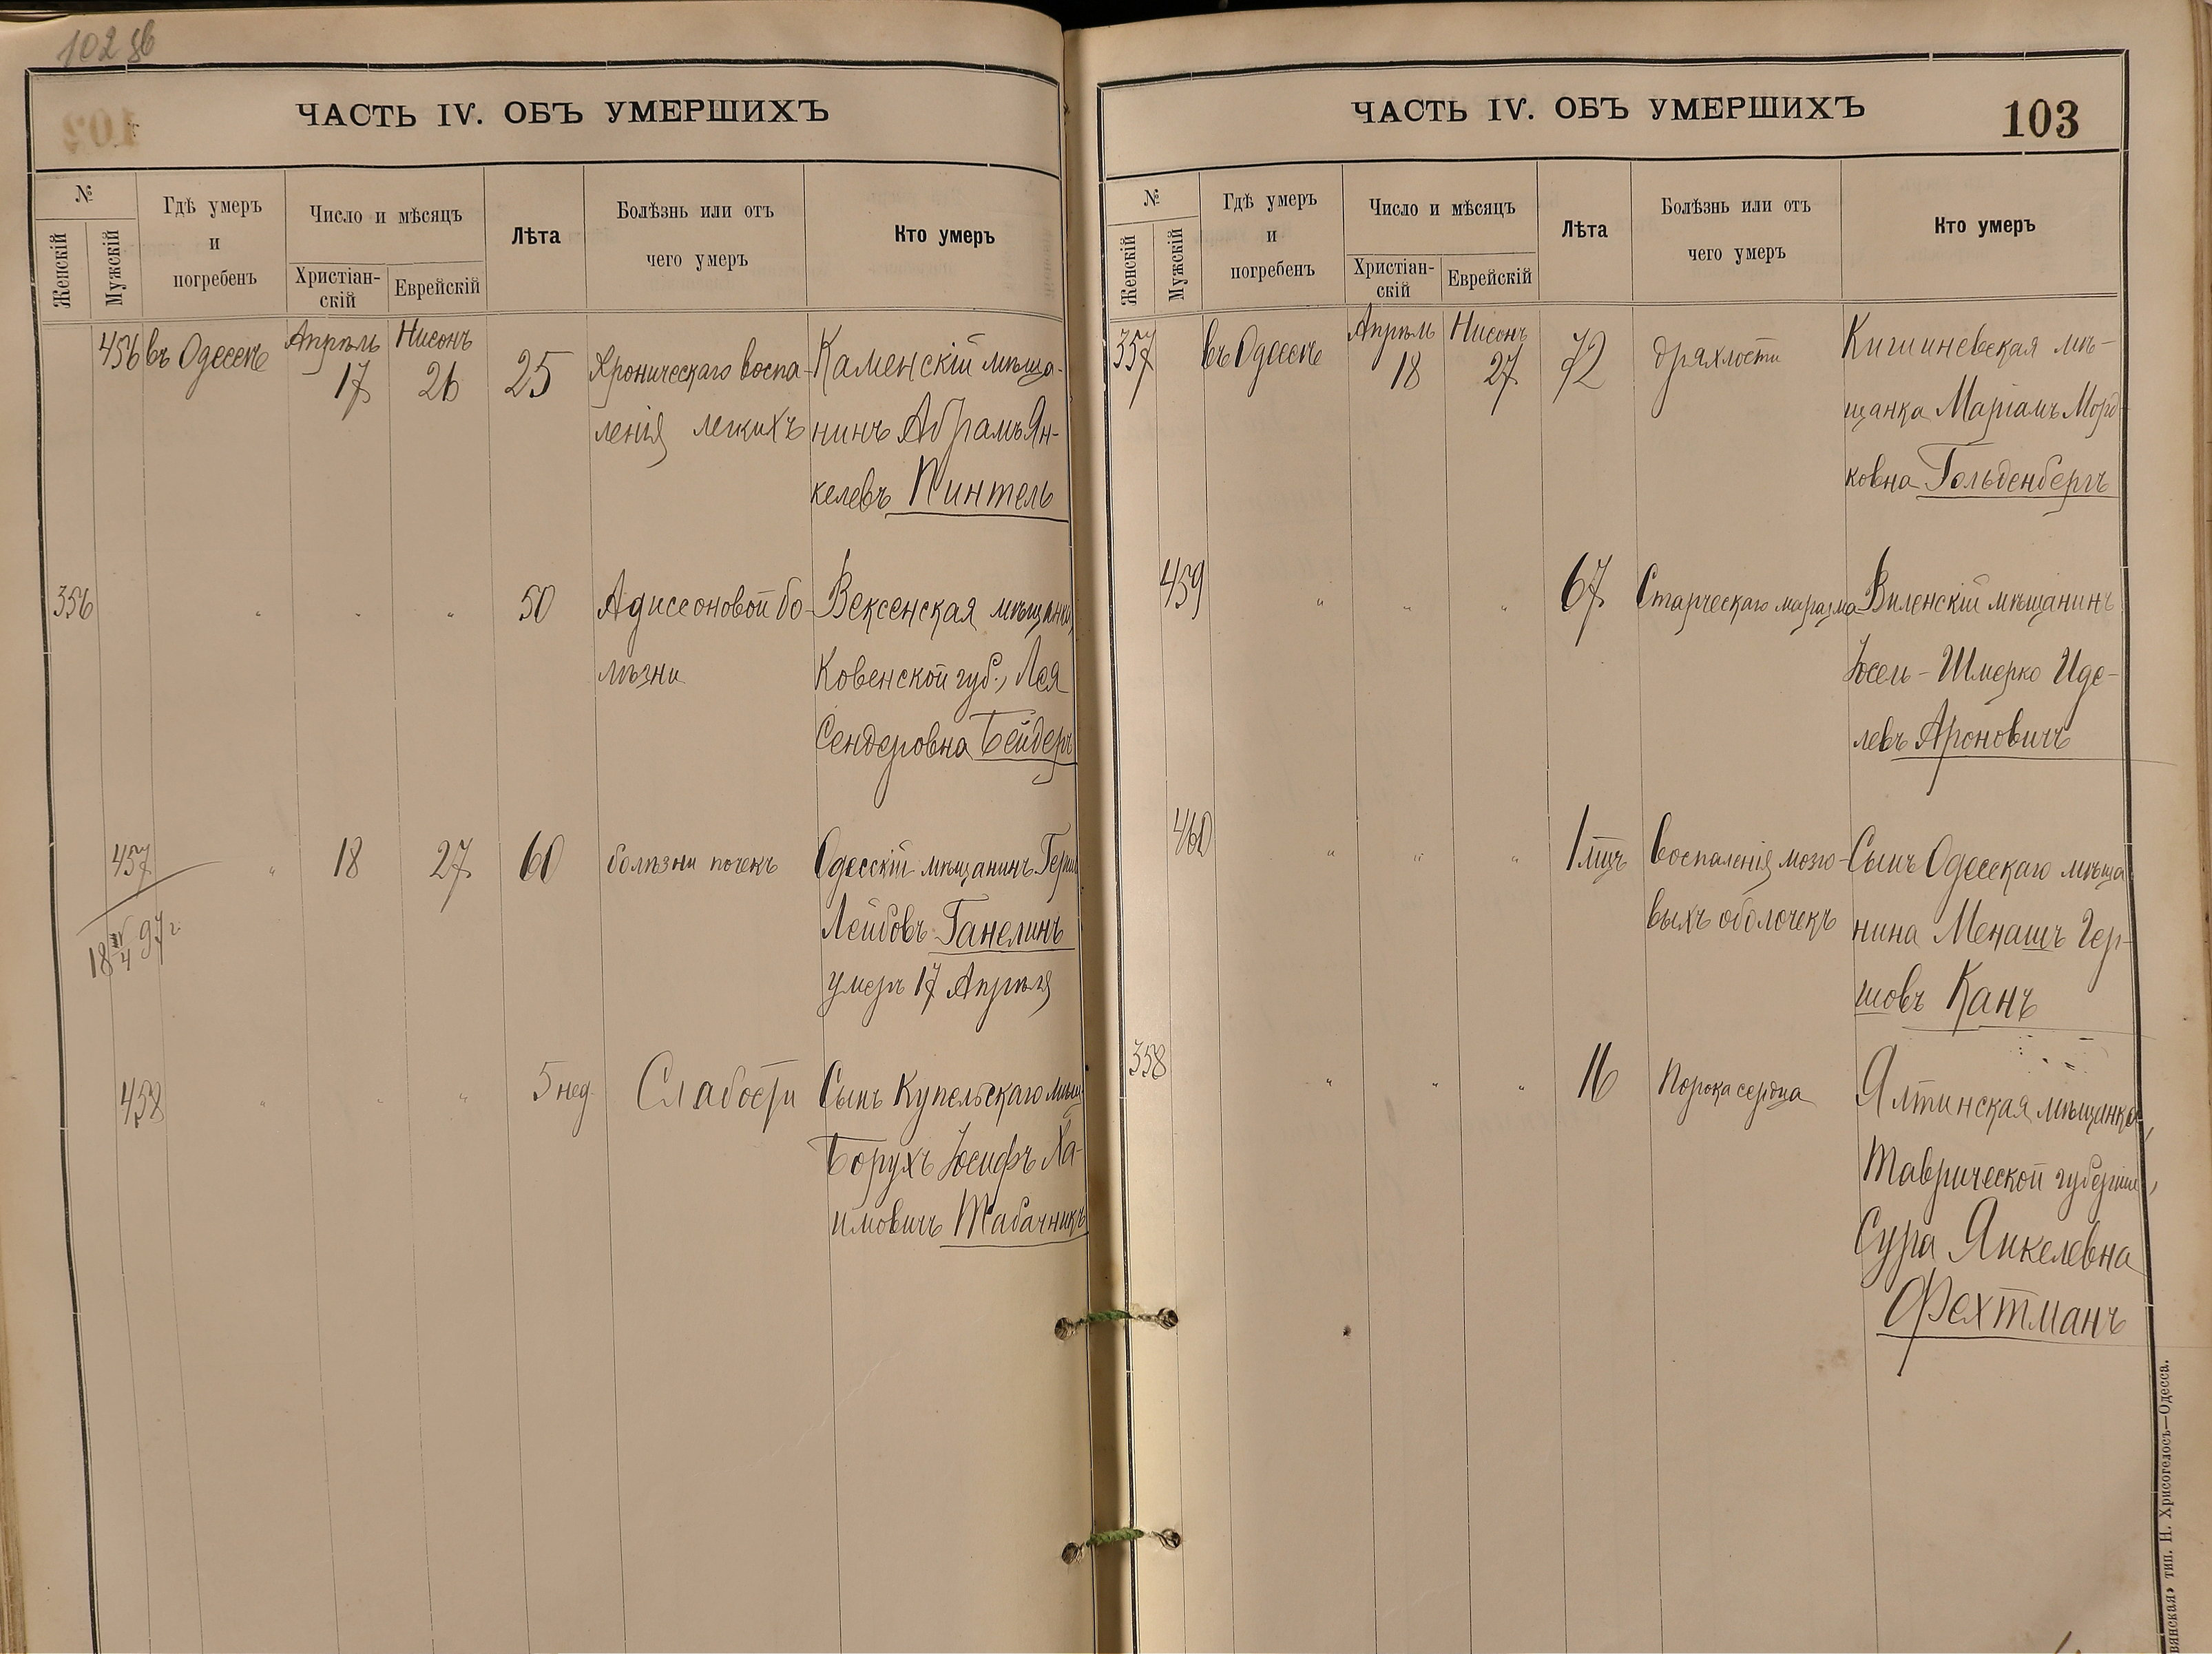 102 об
ЧАСТЬ IV. ОБЪ УМЕРШИХЪ
№
Женскій
Мужскій
Гдѣ умеръ
и
погребенъ
Число и мѣсяцъ
Христіан-
скій
Еврейскій
Лѣта
Болѣзнь или отъ
чего умеръ
Кто умеръ
456 въ Одессѣ Апрѣль 17 Нисонъ 26 25 Хроническаго воспа- Каменскій мѣща-
ленія легкихъ нинъ Абрамъ Ян-
келевъ Пинтель
356 " " " 50 Адисеоновой бо- Вексенская мѣщанка,
лѣзни Ковенской губ., Лея
Сендеровна Бейдеръ
457 " 18 27 60 болѣзни почекъ Одесскій мѣщанинъ
18 IV/4 97 г. Лейбовъ Ганелинъ
умеръ 17 Апрѣля
458 " " " 5 нед. Слабости Сынъ Купельскаго мѣщ.
Борухъ Іосифъ Ха-
имовичъ Табачникъ
ЧАСТЬ IV. ОБЪ УМЕРШИХЪ
103
№
Женскій
Мужскій
Гдѣ умеръ
и
погребенъ
Число и мѣсяцъ
Христіан-
скій
Еврейскій
Лѣта
Болѣзнь или отъ
чего умеръ
Кто умеръ
357 въ Одессѣ Апрѣль 18 Нисонъ 27 72 дряхлости Кишиневская мѣ-
щанка Маріамъ Морд-
ковна Гольденбергъ
459 " " " 67 Старческаго маразма Виленскій мѣщанинъ
Іосель-Шмерко Иде-
левъ Ароновичъ
460 " " " 1 мцъ воспаленія мозго- Сынъ Одесскаго мѣща
выхъ оболочекъ нина Менашъ Гер-
шовъ Канъ
358 " " " 16 Порока сердца Ялтинская мѣщанка,
Таврической губерніи,
Сура Янкелевна
Фехтманъ
вянская» тип. Н. Хрисогелосъ—Одесса.